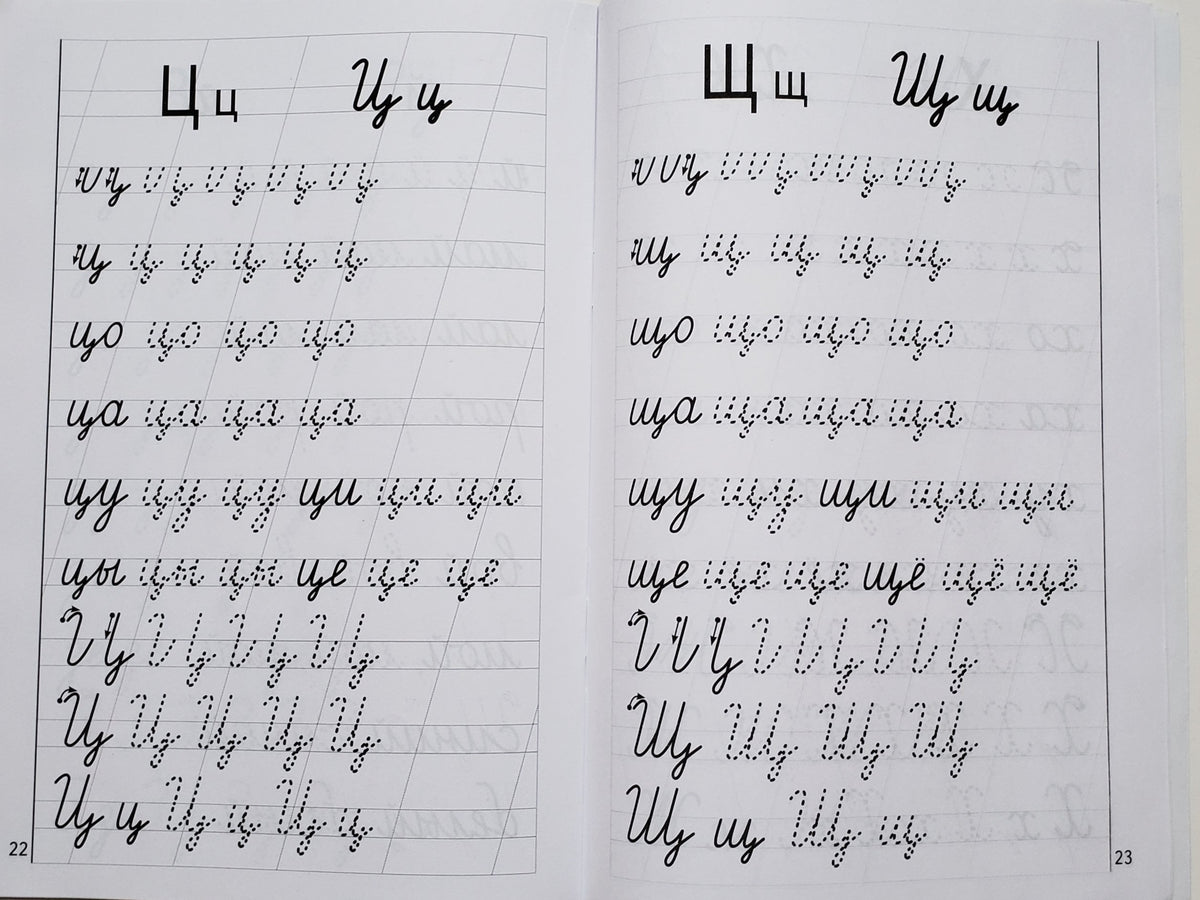 Ц ц Ц ц
ц ц ц ц ц ц
цо цо цо цо
ца ца ца ца
цу цу цу ци ци ци
цы цы цы це це це
Ц Ц Ц Ц Ц
Ц ц Ц ц Ц ц
22
Щ щ Щ щ
щ щ щ щ щ
що що що що
ща ща ща ща
щу щу щи щи щи
ще ще ще щё щё щё
Щ Щ Щ Щ
Щ щ Щ щ
23